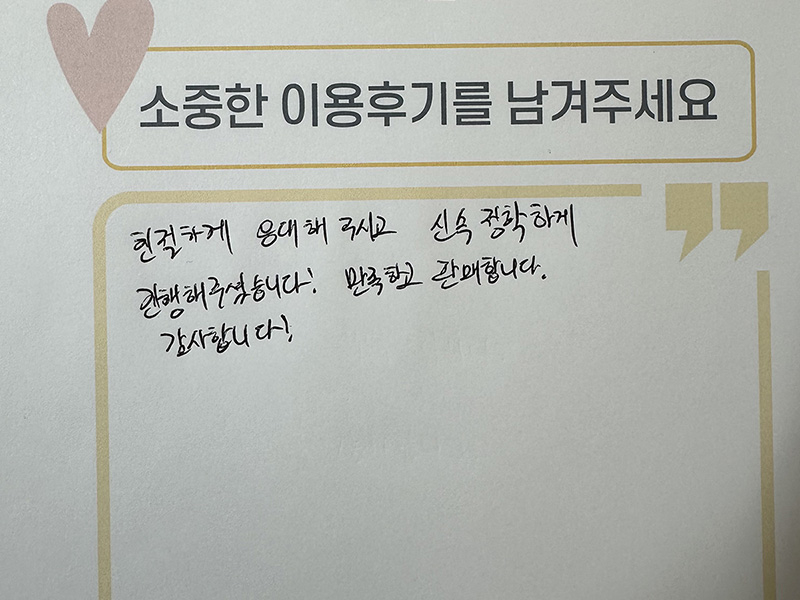 소중한 이용후기를 남겨주세요
친절하게 응대해 주시고 신속 정확하게
진행해주셨습니다! 만족하고 판매합니다.
감사합니다!